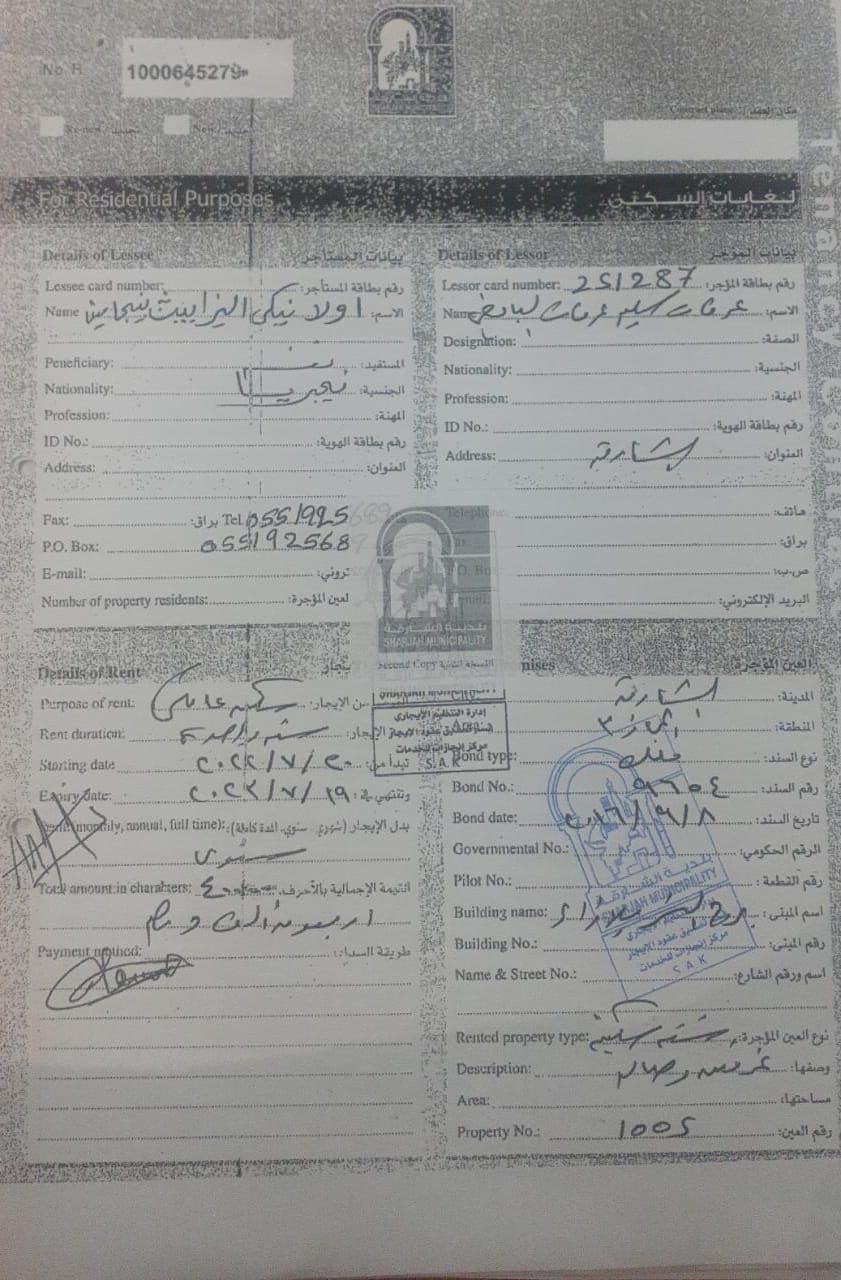 No. R
1000645279
Renewal تجديد New جديد
Contract place: مكان العقد
Tenan
For Residential Purposes لغايات السكن
Details of Lessee بيانات المستأجر
Lessee card number: رقم بطاقة المستأجر:
Name اولا نيكي اليزابيث الاسم:
Peneficiary: المستفيد:
Nationality: نيجيريا الجنسية:
Profession: المهنة:
ID No.: رقم بطاقة الهوية:
Address: العنوان:
Fax: براق: Tel 0551925
P.O. Box: 055192568
E-mail: تروني:
Number of property residents: لعين المؤجرة:
Details of Lessor بيانات المؤجر
Lessor card number: 251287 رقم بطاقة المؤجر:
Name عرفات سليم عرفات الاسم:
Designation: الصفة:
Nationality: الجنسية:
Profession: المهنة:
ID No.: رقم بطاقة الهوية:
Address: الشارقة العنوان:
Telephone: هاتف:
Fax: براق:
P.O. Box ص.ب:
البريد الإلكتروني:
بلدية الشارقة
SHARJAH MUNICIPALITY
Second Copy النسخة الثانية
Details of Rent يجار
Purpose of rent: سكن عائلي من الإيجار:
Rent duration: سنة واحدة الإيجار:
Starting date ٢٠٢٢/٧/٢٠ تبدأ من:
Expiry date: ٢٠٢٣/٧/١٩ وتنتهي في:
monthly, annual, full time): بدل الإيجار (شهري، سنوي، المدة كاملة):
سنوي
Total amount in charahters: القيمة الإجمالية بالأحرف:
اربعون ألف درهم
Payment method: طريقة السداد:
إدارة التنظيم الإيجاري
مركز إنجازات للخدمات
S.A.K
mises العين المؤجرة
الشارقة المدينة:
المنطقة:
Bond type: ملك نوع السند:
Bond No.: ٩٦٥٤ رقم السند:
Bond date: ٢٠١٦/٩/٨ تاريخ السند:
Governmental No.: الرقم الحكومي:
Pilot No.: رقم القطعة:
Building name: اسم المبنى:
Building No.: رقم المبنى:
Name & Street No.: اسم ورقم الشارع:
Rented property type: شقة سكنية نوع العين المؤجرة:
Description: غرفتين وصالة وصفها:
Area: مساحتها:
Property No.: 1005 رقم العين:
بلدية الشارقة
SHARJAH MUNICIPALITY
مركز إنجازات للخدمات
S.A.K